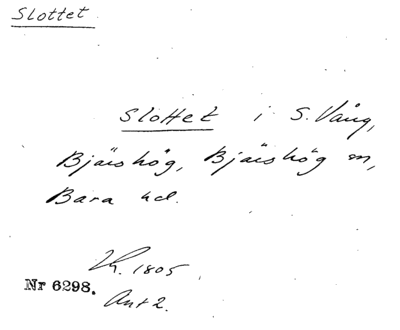 Slottet
Slottet i S. Vång,
Bjärshög, Bjärshög sn,
Bara hd.
Lh. 1805
Nr 6298.
Ant 2.